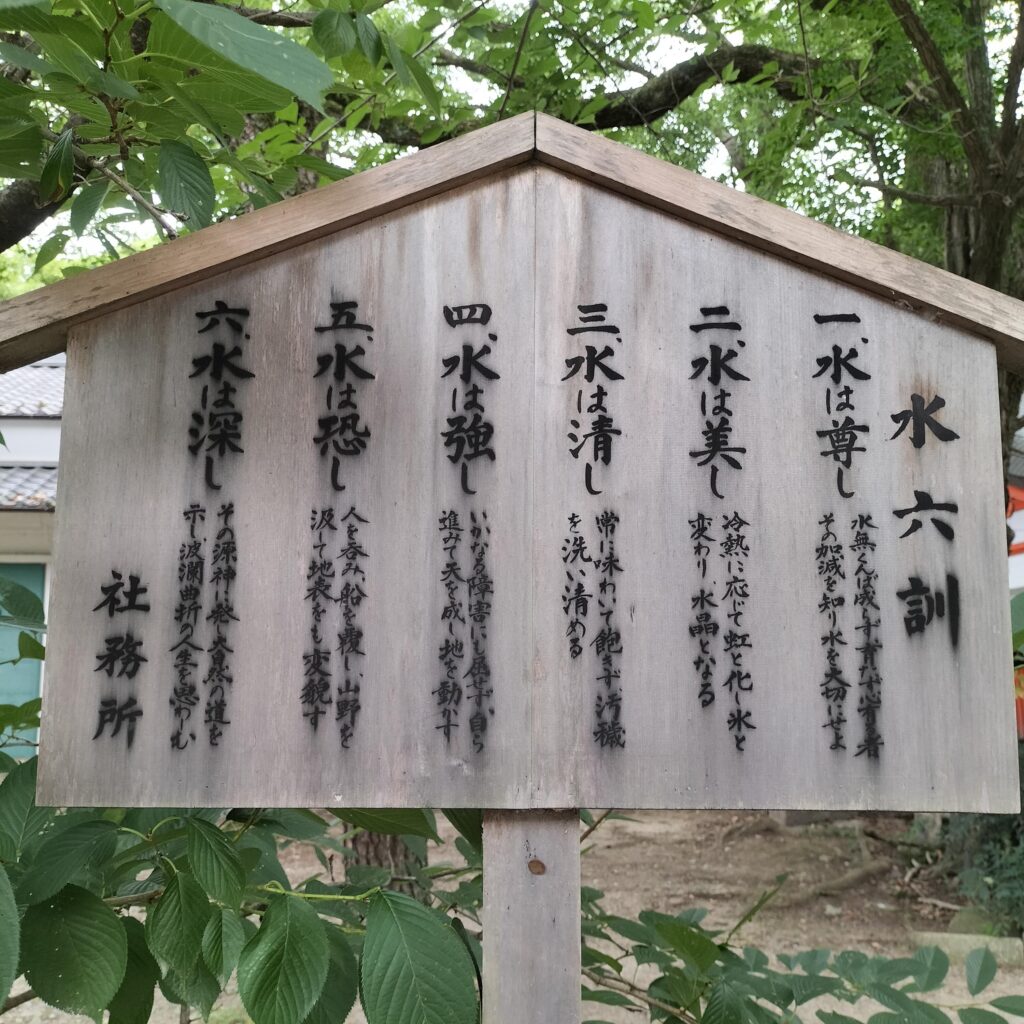 水六訓
一、水は尊し
水無くんば成らず育たず若者
その加減を知り水を大切にせよ
二、水は美し
冷熱に応じて虹と化し氷と
変わり、水晶となる
三、水は清し
常に味わいて飽きず、汚穢
を洗い清める
四、水は強し
いかなる障害にも屈せず、自ら
進みて天を成し地を動かす
五、水は恐し
人を呑み、船を覆し、山野を
汲して地表をも変貌す
六、水は深し
その源神に発し大自然の道を
示し、波瀾曲折の人生を思わしむ
社務所